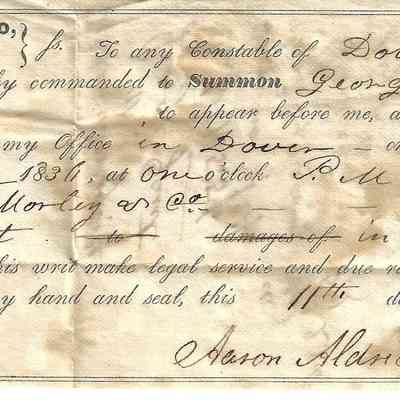 o, } ss. To any Constable of Dov
y commanded to Summon Georg
to appear before me, a
my Office in Dover — o
1836, at one o'clock P. M
Morley & Co —
t. to damages of in
his writ make legal service and due r
y hand and seal, this 11th d
Aaron Aldr